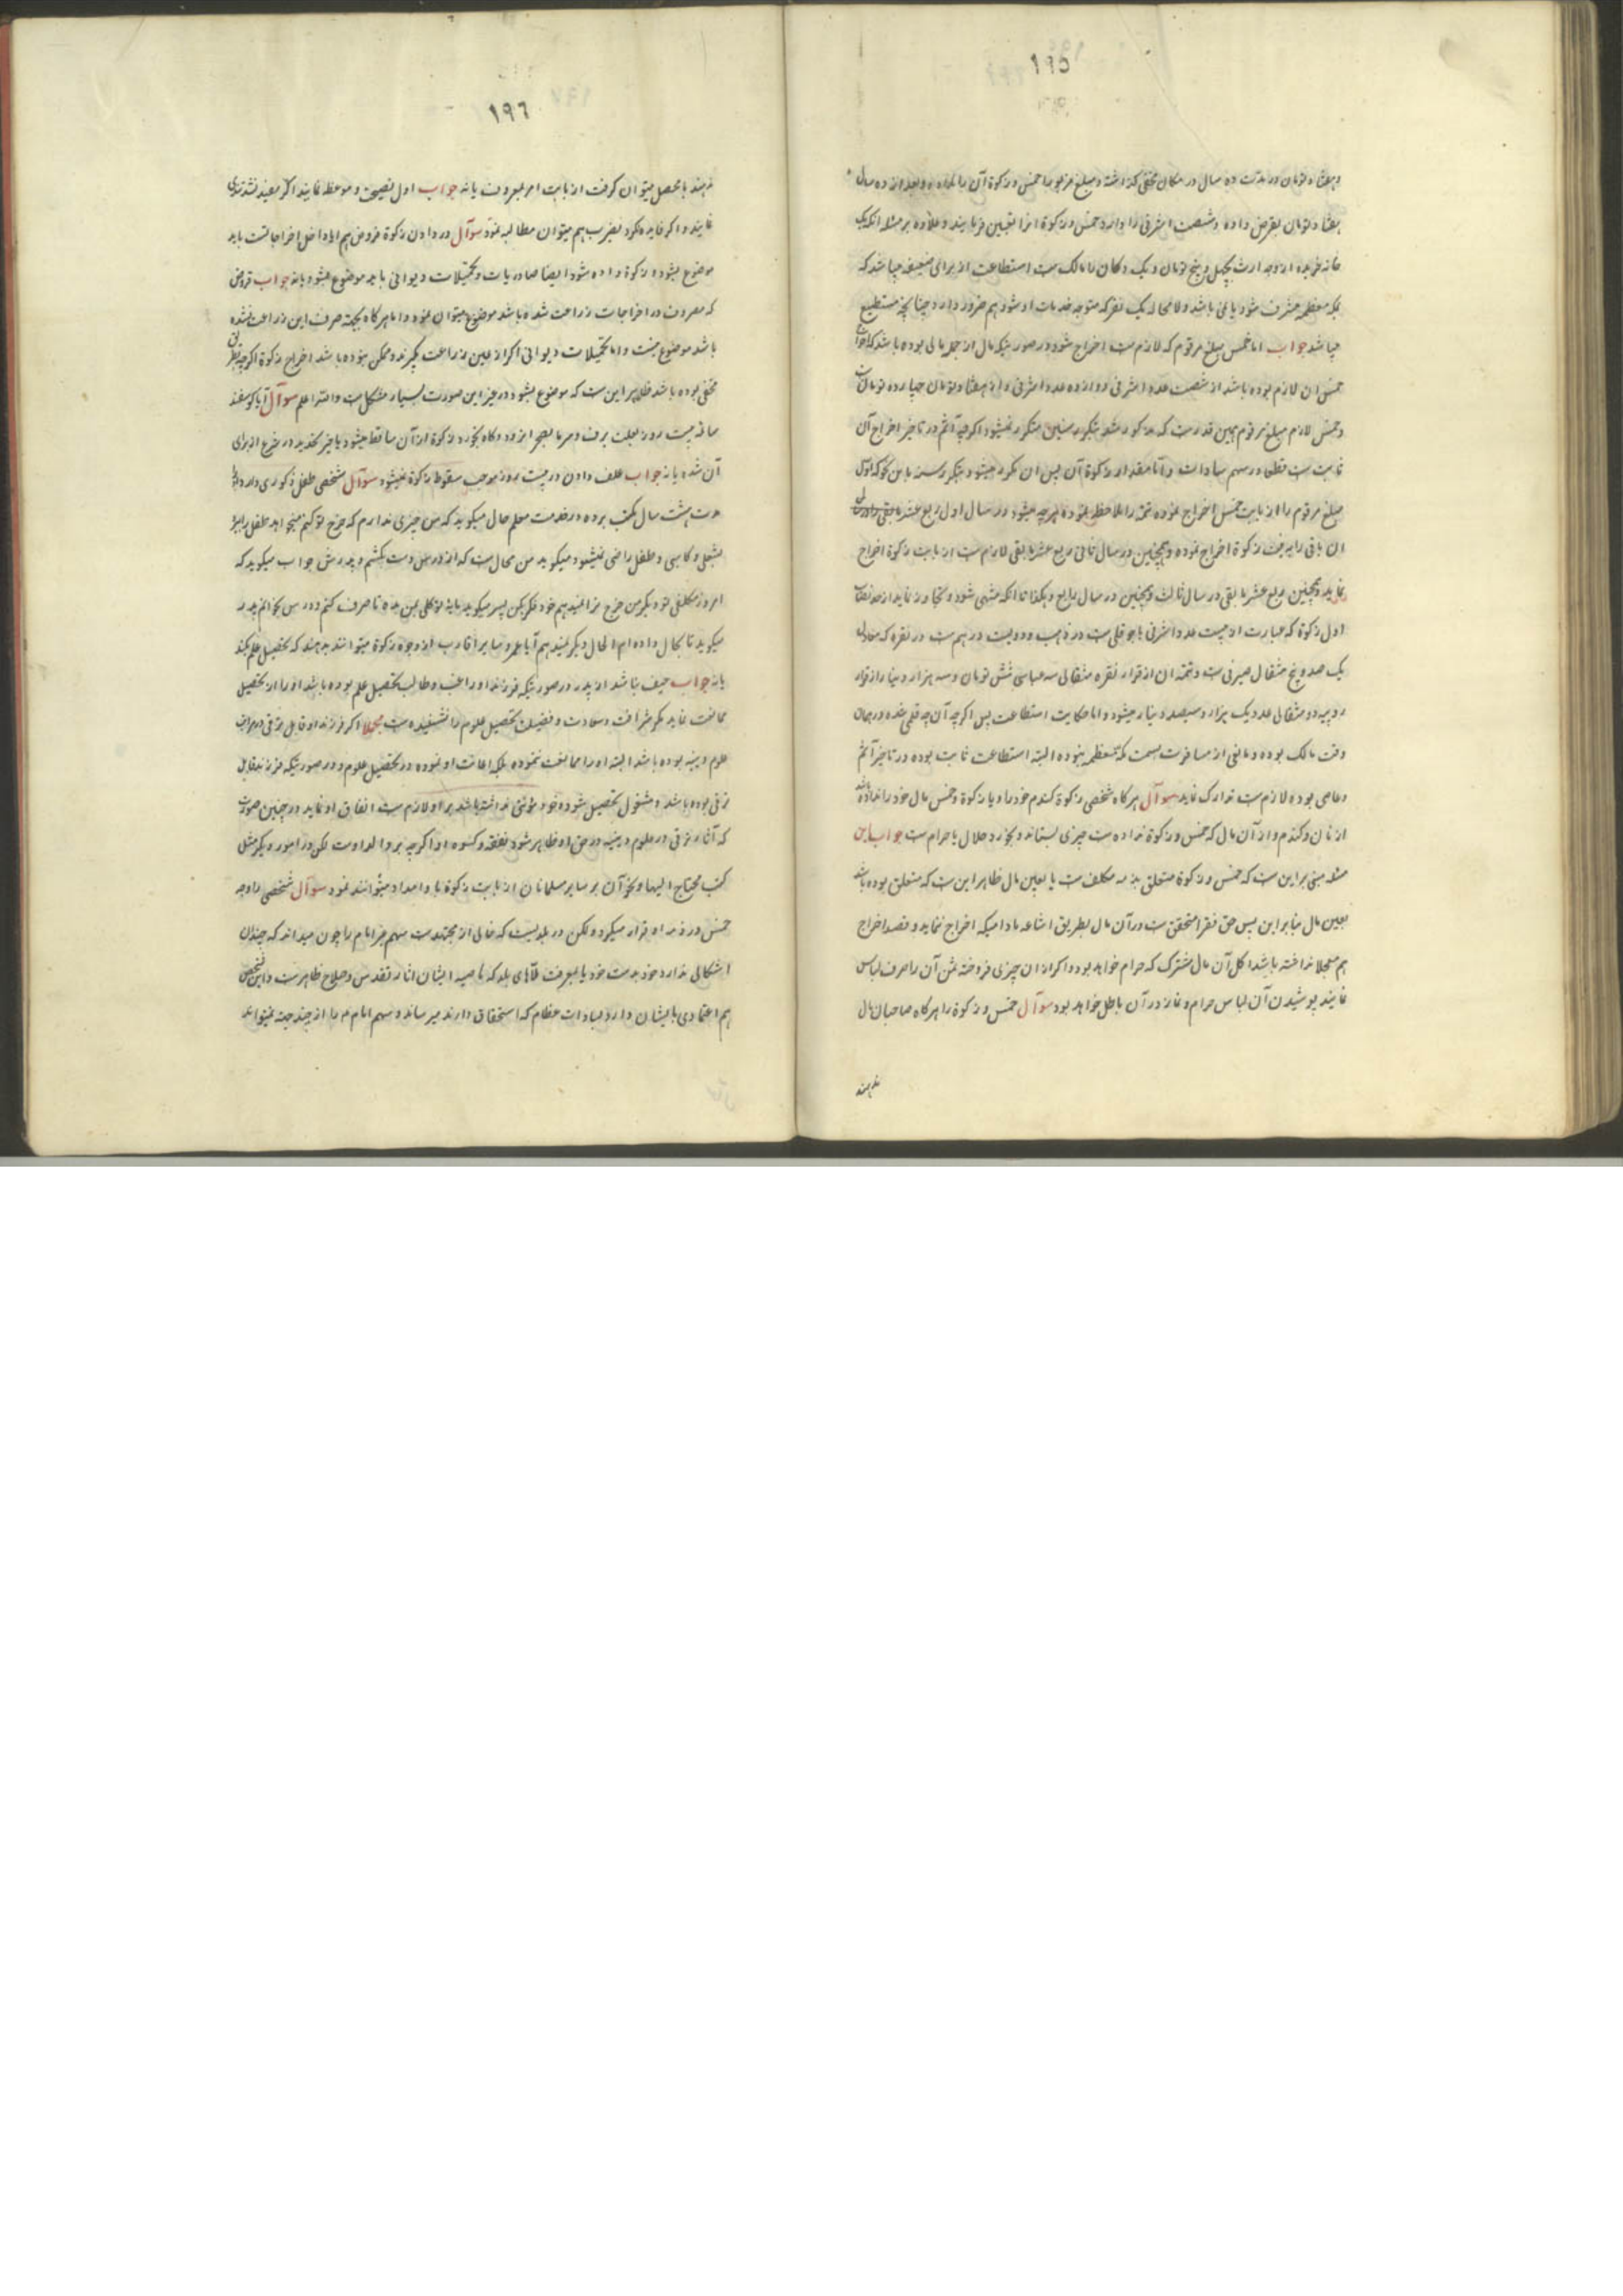 ١٩٥
وهفتاد تومان در مدت ده سال در مكان مخفی گذاشته و مبلغ مزبور را خمس و زكوة آن را نداده و بعد از ده سال
هفتاد تومان بقرض داده و شصت اشرفی را دارد خمس و زكوة انرا تعیین فرمایند و علاوه بر مسئله انكه یک
خانه خریده از وجه ارث بچهل و پنج تومان و یک دكان را مالک است استطاعت از برای ضعیفه میباشد كه
بمكه معظمه مشرف شود یا نمی باشد و لا محاله یک نفر كه متوجه خدمات او شود هم ضرور دارد چنانچه مستطیع
میباشد جواب اما خمس مبلغ مرقوم كه لازم است اخراج شود در صورتیكه مال از جمله مالی بوده باشد كه اخراج
خمس ان لازم بوده باشد از شصت عدد اشرفی دوازده عدد اشرفی و از هفتاد تومان چهارده تومان
و خمس لازم مبلغ مرقوم همین قدر است كه مذكور شد بتكرر سنین متكرر نمیشود اگرچه آثم در تاخیر اخراج آن
ثابت است قطعا در سهم سادات و اما مقدار زكوة آن پس ان مكرر میشود بتكرر سنه باین نحو كه اول
مبلغ مرقوم را از بابت خمس اخراج نموده تتمه را ملاحظه نموده هرچه میشود در سال اول ربع عشر مابقی
ان باقی را بابت زكوة اخراج نموده و همچنین در سال ثانی ربع عشر مابقی لازم است از بابت زكوة اخراج
نماید و همچنین ربع عشر مابقی در سال ثالث و همچنین در سال رابع و هكذا تا انكه منتهی شود و تجاوز نماید از حد نصاب
اول زكوة كه عبارت از بیست عدد اشرفی باجوقلی است در ذهب و دویست درهم است در نقره كه معادل
یک صد و پنج مثقال صیرفی است و تتمه ان از قرار نقره مثقالی سه عباسی شش تومان و سه هزار دینار از قرار
روپیه دو مثقالی عدد یک هزار و سیصد دینار میشود و اما حكایت استطاعت پس اگرچه آن چه قلمی شده در همان
وقت مالک بوده و مانعی از مسافرت بسمت مكه معظمه نبوده البته استطاعت ثابت بوده در تاخیر آثم
و عاصی بوده لازم است تدارک نماید سوآل هر كاه شخصی زكوة كندم خود را و یا زكوة و خمس مال خود را نداده باشد
از نان و كندم و از آن مال كه خمس و زكوة نداده است چیزی بستاند و بخورد حلال یا حرام است جواب این
مسئله مبنی براین است كه خمس و زكوة متعلق بذمه مكلف است یا بعین مال ظاهر این است كه متعلق بوده باشد
بعین مال بنابر این پس حق فقرا متحقق است در آن مال بطریق اشاعه مادامیكه اخراج ننماید و قصد اخراج
هم معجلا نداشته باشد اكل آن مال مشترک كه حرام خواهد بود و اكر از ان چیزی فروخته ثمن آن را صرف لباس
نمایند پوشیدن آن لباس حرام و نماز در آن باطل خواهد بود سوآل خمس و زكوة را هر كاه صاحبان مال
ندهند
١٩٦
ندهند بمحصل میتوان كرفت از بابت امر بمعروف یا نه جواب اول نصیحت و موعظه نمایند اكر مفید نشد تندی
نمایند و اكر فایده نكرد بضرب هم میتوان مطالبه نمود سوآل در دادن زكوة قروض هم ایا داخل اخراجاتست باید
موضوع بشود زكوة داده شود ایضا صادریات و تحمیلات دیوانی باید موضوع بشود یا نه جواب قروض
كه مصروف در اخراجات زراعت شده باشد موضوع میتوان نمود و اما هر كاه بجهة صرف این زراعت نشده
باشد موضوع نیست و اما تحمیلات دیوانی اكر از عین زراعت بگیرند و ممكن نبوده باشد اخراج زكوة اگرچه بطریق
مخفی بوده باشد ظاهر این است كه موضوع بشود در غیر این صورت بسیار مشكل است والله اعلم سوآل آیا كوسفند
سائمه بیست روز بعلت برف و سرما بصحرا نرود و كاه بخورد زكوة از آن ساقط میشود یا خیر
آن شده یا نه جواب علف دادن در بیست روز موجب سقوط زكوة نمیشود سوآل شخصی طفل ذكوری دارد
مدت هشت سال بمكتب برده در خدمت معلم حال میكوید كه من چیزی ندارم كه خرج تو كنم میخواهد طفل را ببرد
بشغلی و كاسبی و طفل راضی نمیشود میكوید من محال است كه از درس دست بكشم و پدرش جواب میكوید كه
امروز مكلفی تو دیكر من خرج ترا نمیدهم خود فكر بكن پسر میكوید
میكوید تا بحال داده ام الحال دیگر نمیدهم آیا عمو و سایر اقارب از وجوه زكوة میتوانند بدهند كه تحصیل علم بكند
یا نه جواب حیف باشد از پدر در صورتیكه فرزند او راغب و طالب تحصیل علم بوده باشد او را از تحصیل
ممانعت نماید مكر شرافت و سعادت و فضیلت تحصیل علوم را نشنیده است مجملا اكر فرزند او قابل ترقی در مراتب
علوم دینیه بوده باشد البته او را ممانعت ننموده بلكه اعانت او نموده در تحصیل علوم و در صورتیكه فرزند قابل
ترقی بوده باشد و مشغول تحصیل شود و خود مؤنتی نداشته باشد بر او لازم است انفاق او نماید در چنین صورت
كه آثار ترقی در علوم دینیه در حق او ظاهر شود نفقه و كسوه او اكرچه بر والد اوست لكن در امور دیكر مثل
كتب محتاج الیها و نحو آن بر سایر مسلمانان از بابت زكوة با و امداد میتوانند نمود سوآل شخصی را وجه
خمس در ذمه او قرار میكیرد ولكن در بلدیست كه خالی از مجتهد است سهم غیر امام را چون میداند كه چندان
اشكالی ندارد خود بدست خود یا بمعرفت ملاّهای بلد كه ناصیه ایشان اثار تقدس و صلاح ظاهر است و این شخص
هم اعتمادی بایشان دارد بسادات عظام كه استحقاق دارند میرساند و سهم امام ع را از چند جهة نمیتواند